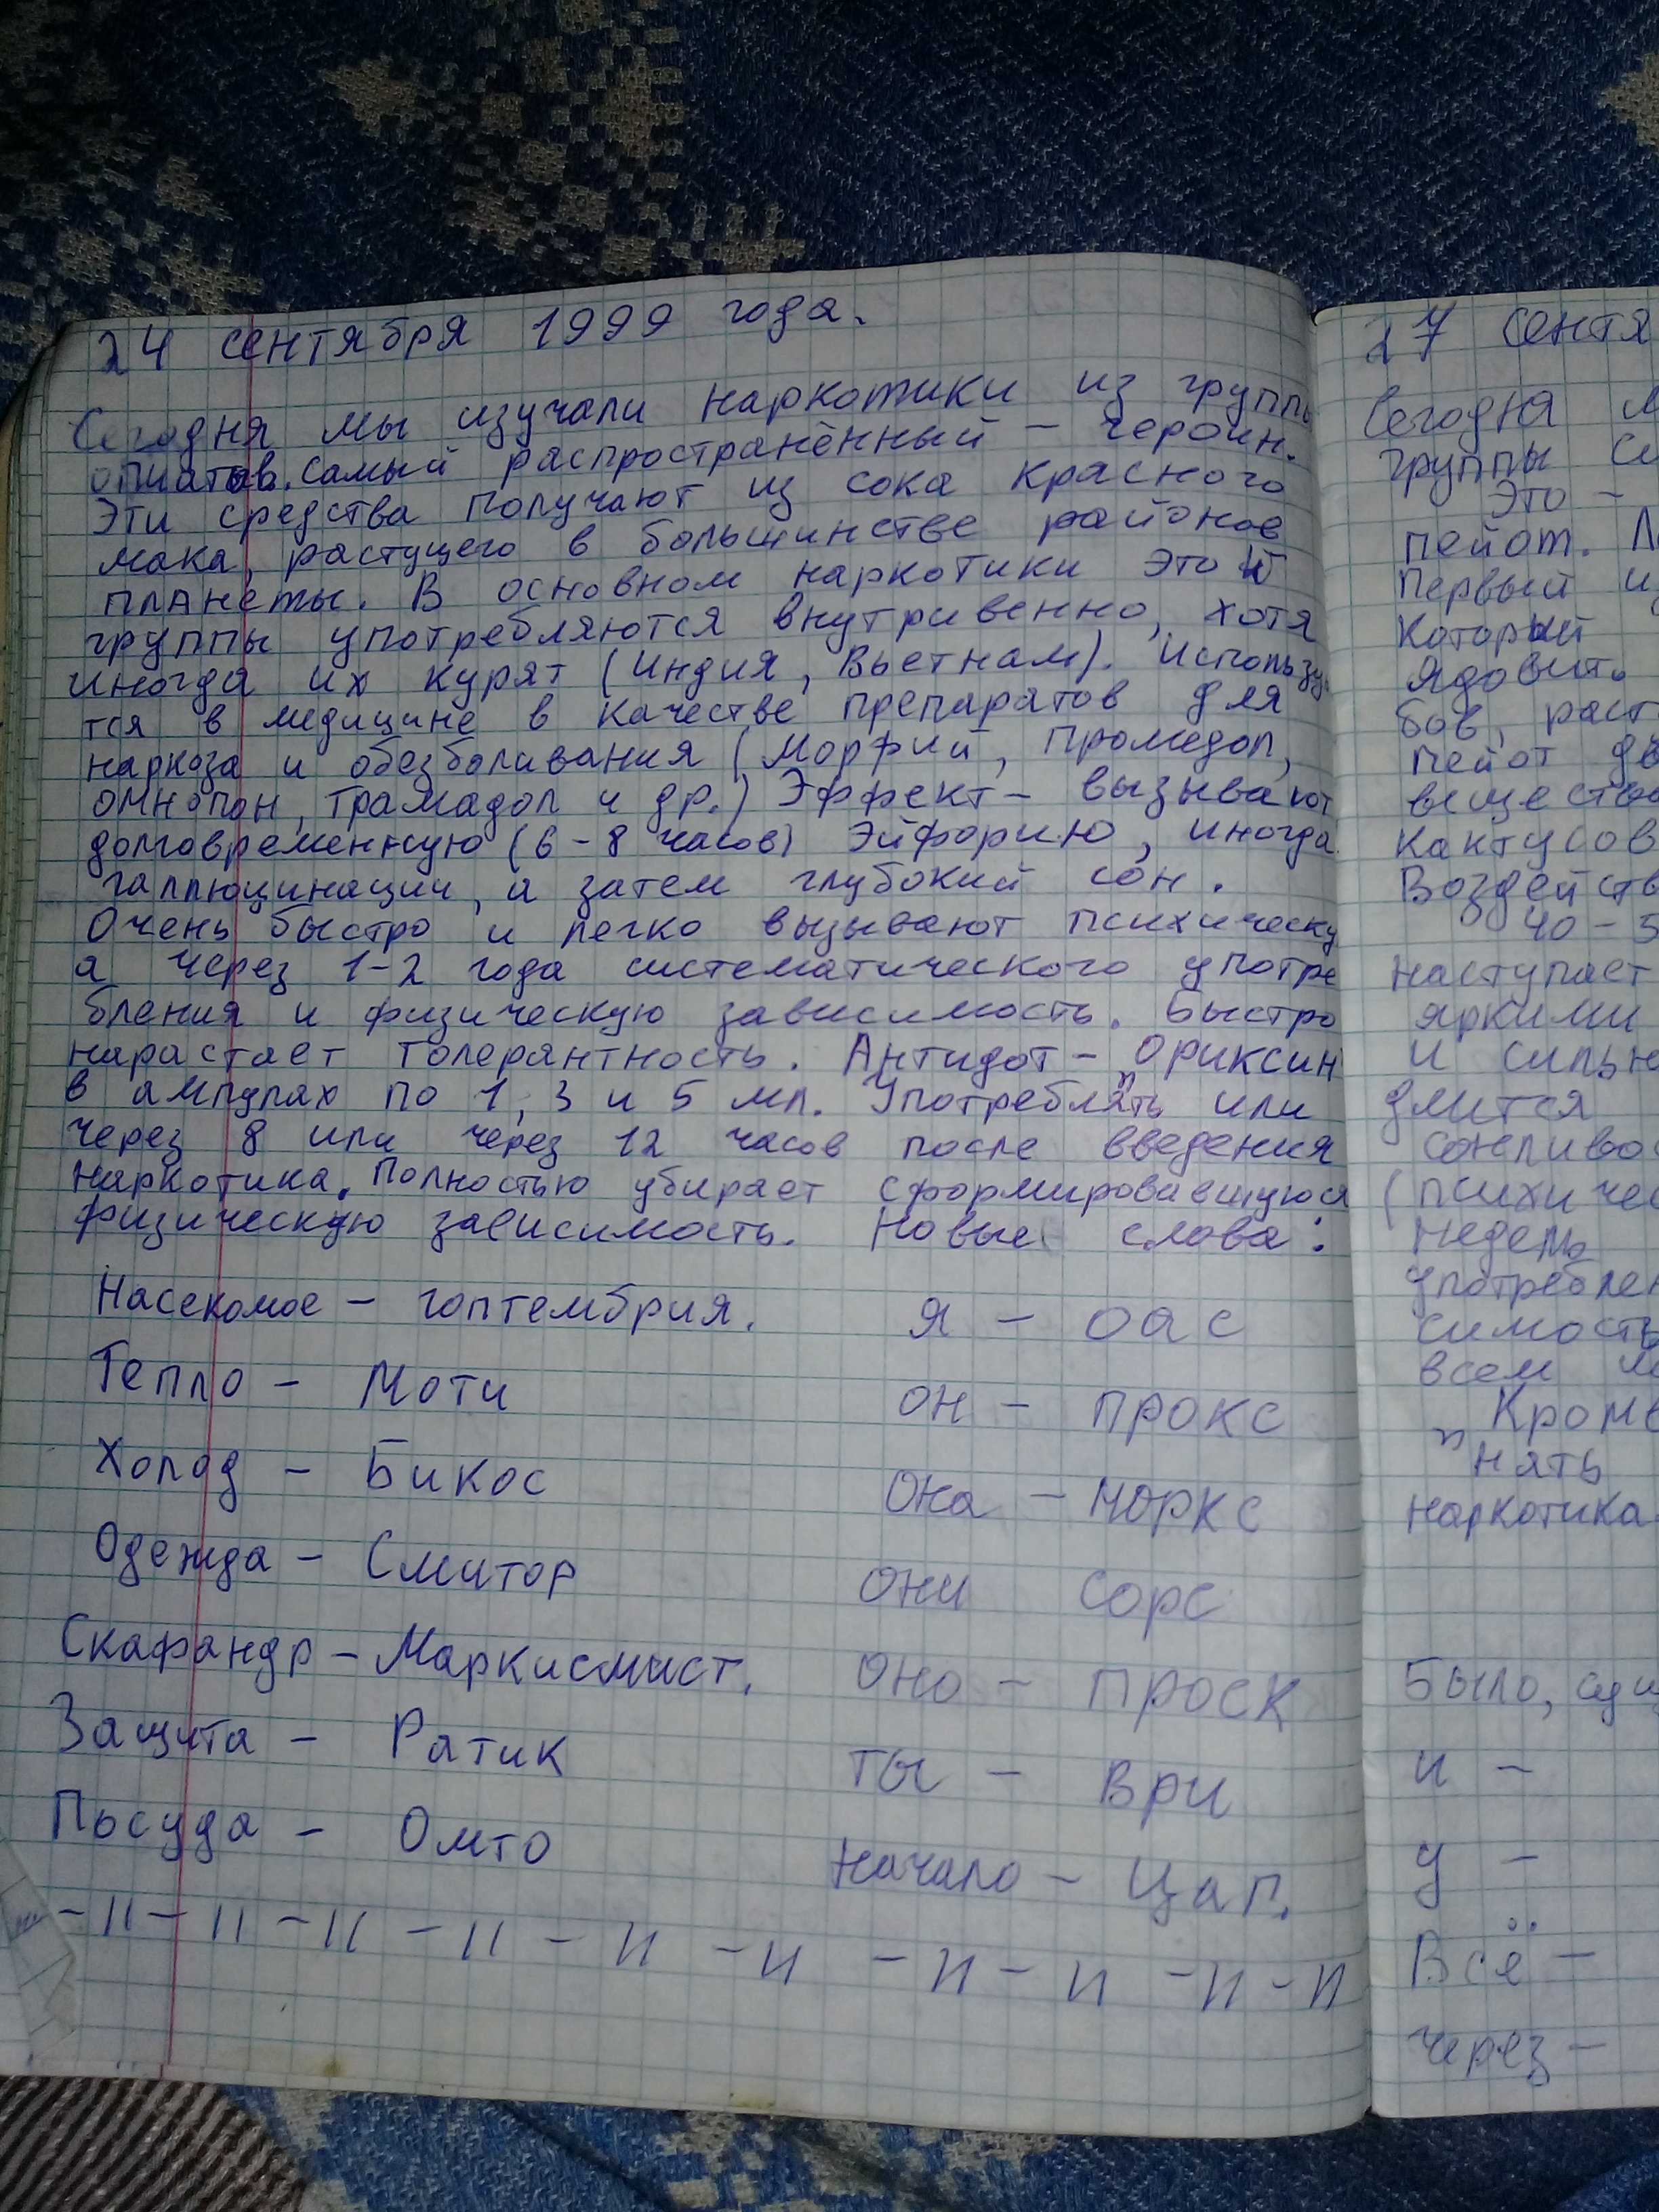 24 сентября 1999 года.
Сегодня мы изучали наркотики из группы
опиатов. Самый распространённый – героин.
Эти средства получают из сока красного
мака, растущего в большинстве районов
планеты. В основном наркотики этой
группы употребляются внутривенно, хотя
иногда их курят (Индия, Вьетнам). Использу
тся в медицине в качестве препаратов для
наркоза и обезболивания (Морфий, промедол,
омнопон, трамадол и др.) Эффект – вызывают
долговременную (6-8 часов) Эйфорию, иногда
галлюцинации, а затем глубокий сон.
Очень быстро и легко вызывают психическу
а через 1-2 года систематического употре
бления и физическую зависимость. Быстро
нарастает толерантность. Антидот – Ориксин
в ампулах по 1, 3 и 5 мл. Употреблять или
через 8 или через 12 часов после введения
наркотика. Полностью убирает сформировавшуюся
физическую зависимость. Новые слова:
Насекомое – гоптембрия. я – оас
Тепло – Моти он – прокс
Холод – Бикос она – норкс
Одежда – Смитор они сорс
Скафандр – Маркисмист. оно – проск
Защита – Ратик ты – ври
Посуда – Омто начало – цап.
– 11 – 11 – 11 – 11 – 11 – 11 – 11 – 11 – 11 – 11
27 сентя
Сегодня м
группы си
Это –
пейот. Л
Первый из
который
ядовит.
бов, раст
пейот дв
вещество
кактусов
Воздейств
40-5
наступает
яркими
и сильн
длится
сонливос
(психичес
недель
употреблен
симость
всем м
Кроме
нять
наркотика.
Было, сущ
и –
у –
Всё –
через –